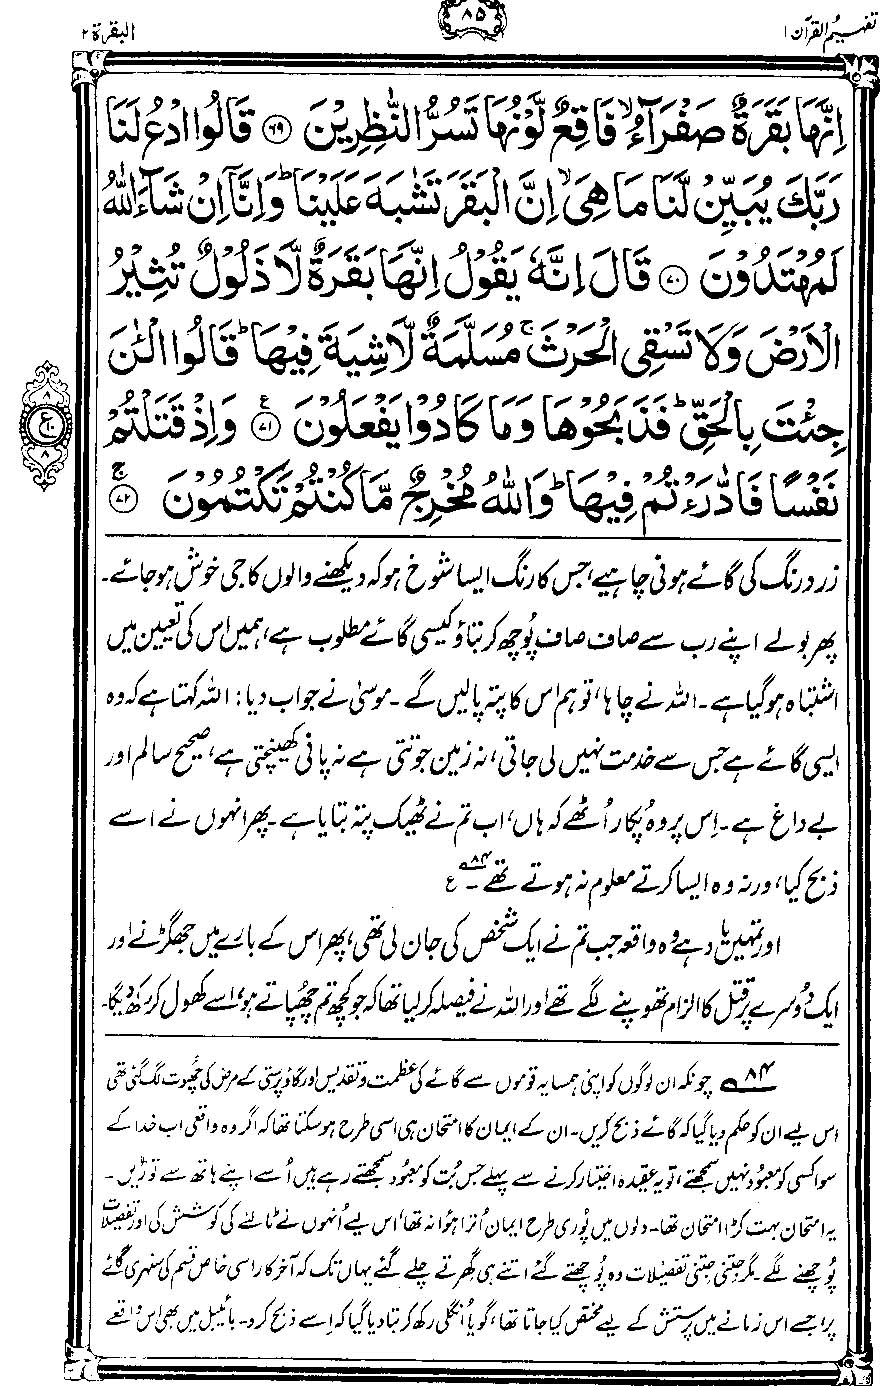 تفہیم القرآن ۱
۸۵
البقرۃ ۲
اِنَّهَا بَقَرَةٌ صَفْرَآءُ ۙ فَاقِعٌ لَّوْنُهَا تَسُرُّ النّٰظِرِيْنَ ﴿۶۹﴾ قَالُوا ادْعُ لَنَا
رَبَّكَ يُبَيِّنْ لَّنَا مَا هِىَ ۙ اِنَّ الْبَقَرَ تَشٰبَهَ عَلَيْنَا ؕ وَاِنَّآ اِنْ شَآءَ اللّٰهُ
لَمُهْتَدُوْنَ ﴿۷۰﴾ قَالَ اِنَّهٗ يَقُوْلُ اِنَّهَا بَقَرَةٌ لَّا ذَلُوْلٌ تُثِيْرُ
الْاَرْضَ وَلَا تَسْقِى الْحَرْثَ ۚ مُسَلَّمَةٌ لَّا شِيَةَ فِيْهَا ؕ قَالُوا الْـٰٔنَ
جِئْتَ بِالْحَقِّ ؕ فَذَبَحُوْهَا وَمَا كَادُوْا يَفْعَلُوْنَ ﴿۷۱﴾ ع وَاِذْ قَتَلْتُمْ
نَفْسًا فَادّٰرَءْتُمْ فِيْهَا ؕ وَاللّٰهُ مُخْرِجٌ مَّا كُنْتُمْ تَكْتُمُوْنَ ﴿۷۲﴾ ۚ
۸
ع ۱۰
۸
زرد رنگ کی گائے ہونی چاہیے، جس کا رنگ ایسا شوخ ہو کہ دیکھنے والوں کا جی خوش ہو جائے۔
پھر بولے اپنے رب سے صاف صاف پُوچھ کر بتاؤ کیسی گائے مطلوب ہے، ہمیں اس کی تعیین میں
اشتباہ ہو گیا ہے۔ اللہ نے چاہا، تو ہم اس کا پتہ پالیں گے۔ موسیٰ نے جواب دیا: اللہ کہتا ہے کہ وہ
ایسی گائے ہے جس سے خدمت نہیں لی جاتی، نہ زمین جوتتی ہے نہ پانی کھینچتی ہے، صحیح سالم اور
بے داغ ہے۔ اِس پر وہ پُکار اُٹھے کہ ہاں، اب تم نے ٹھیک پتہ بتایا ہے۔ پھر انہوں نے اسے
ذبح کیا، ورنہ وہ ایسا کرتے معلوم نہ ہوتے تھے۔ ۸۴ ع
اور تمہیں یاد ہے وہ واقعہ جب تم نے ایک شخص کی جان لی تھی، پھر اس کے بارے میں جھگڑنے اور
ایک دُوسرے پر قتل کا الزام تھوپنے لگے تھے اور اللہ نے فیصلہ کر لیا تھا کہ جو کچھ تم چھُپاتے ہو، اسے کھول کر رکھ دیگا۔
۸۴ چونکہ ان لوگوں کو اپنی ہمسایہ قوموں سے گائے کی عظمت و تقدیس اور گاؤ پرستی کے مرض کی چھُوت لگ گئی تھی
اس لیے ان کو حکم دیا گیا کہ گائے ذبح کریں۔ ان کے ایمان کا امتحان ہی اسی طرح ہو سکتا تھا کہ اگر وہ واقعی اب خدا کے
سوا کسی کو معبُود نہیں سمجھتے، تو یہ عقیدہ اختیار کرنے سے پہلے جس بُت کو معبُود سمجھتے رہے ہیں اُسے اپنے ہاتھ سے توڑیں۔
یہ امتحان بہت کڑا امتحان تھا۔ دلوں میں پُوری طرح ایمان اُترا ہوا نہ تھا، اس لیے اُنہوں نے ٹالنے کی کوشش کی اور تفصیلات
پُوچھنے لگے۔ مگر جتنی جتنی تفصیلات وہ پُوچھتے گئے اتنے ہی گھِرتے چلے گئے یہاں تک کہ آخر کار اسی خاص قسم کی سنہری گائے
پر، جسے اس زمانے میں پرستش کے لیے مختص کیا جاتا تھا، گویا اُنگلی رکھ کر بتا دیا گیا کہ اِسے ذبح کرو۔ بائیبل میں بھی اس واقعے